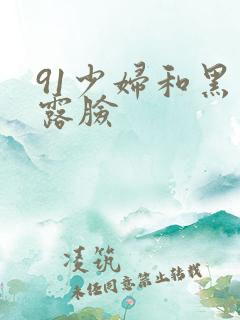 91少婦和黑
露臉
凌筑
未经同意禁止转载